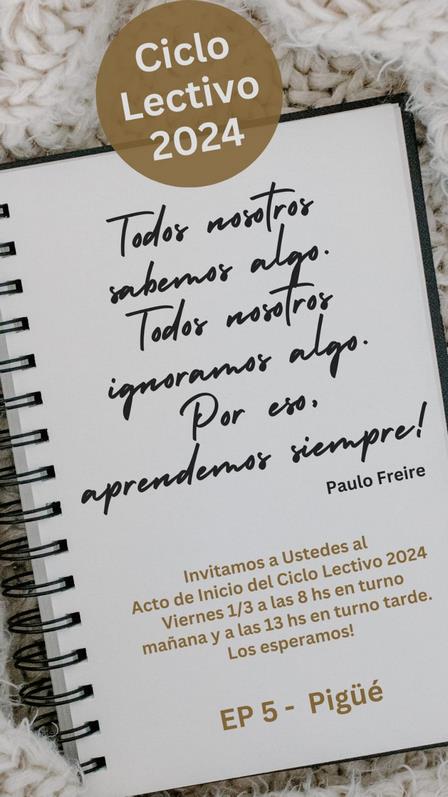 Ciclo
Lectivo
2024
Todos nosotros
sabemos algo.
Todos nosotros
ignoramos algo.
Por eso,
aprendemos siempre!
Paulo Freire
Invitamos a Ustedes al
Acto de Inicio del Ciclo Lectivo 2024
Viernes 1/3 a las 8 hs en turno
mañana y a las 13 hs en turno tarde.
Los esperamos!
EP 5 - Pigüé